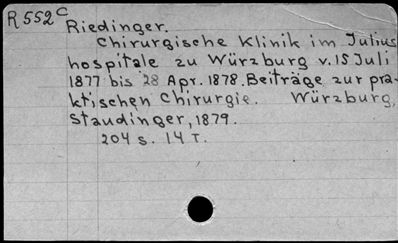 R 552 C
Riedinger.
Chirurgische Klinik im Julius
hospitale zu Würzburg v. 15 Juli
1877 bis 28 Apr. 1878. Beiträge zur pra-
ktischen Chirurgie. Würzburg,
Staudinger, 1879.
204 s. 14 T.